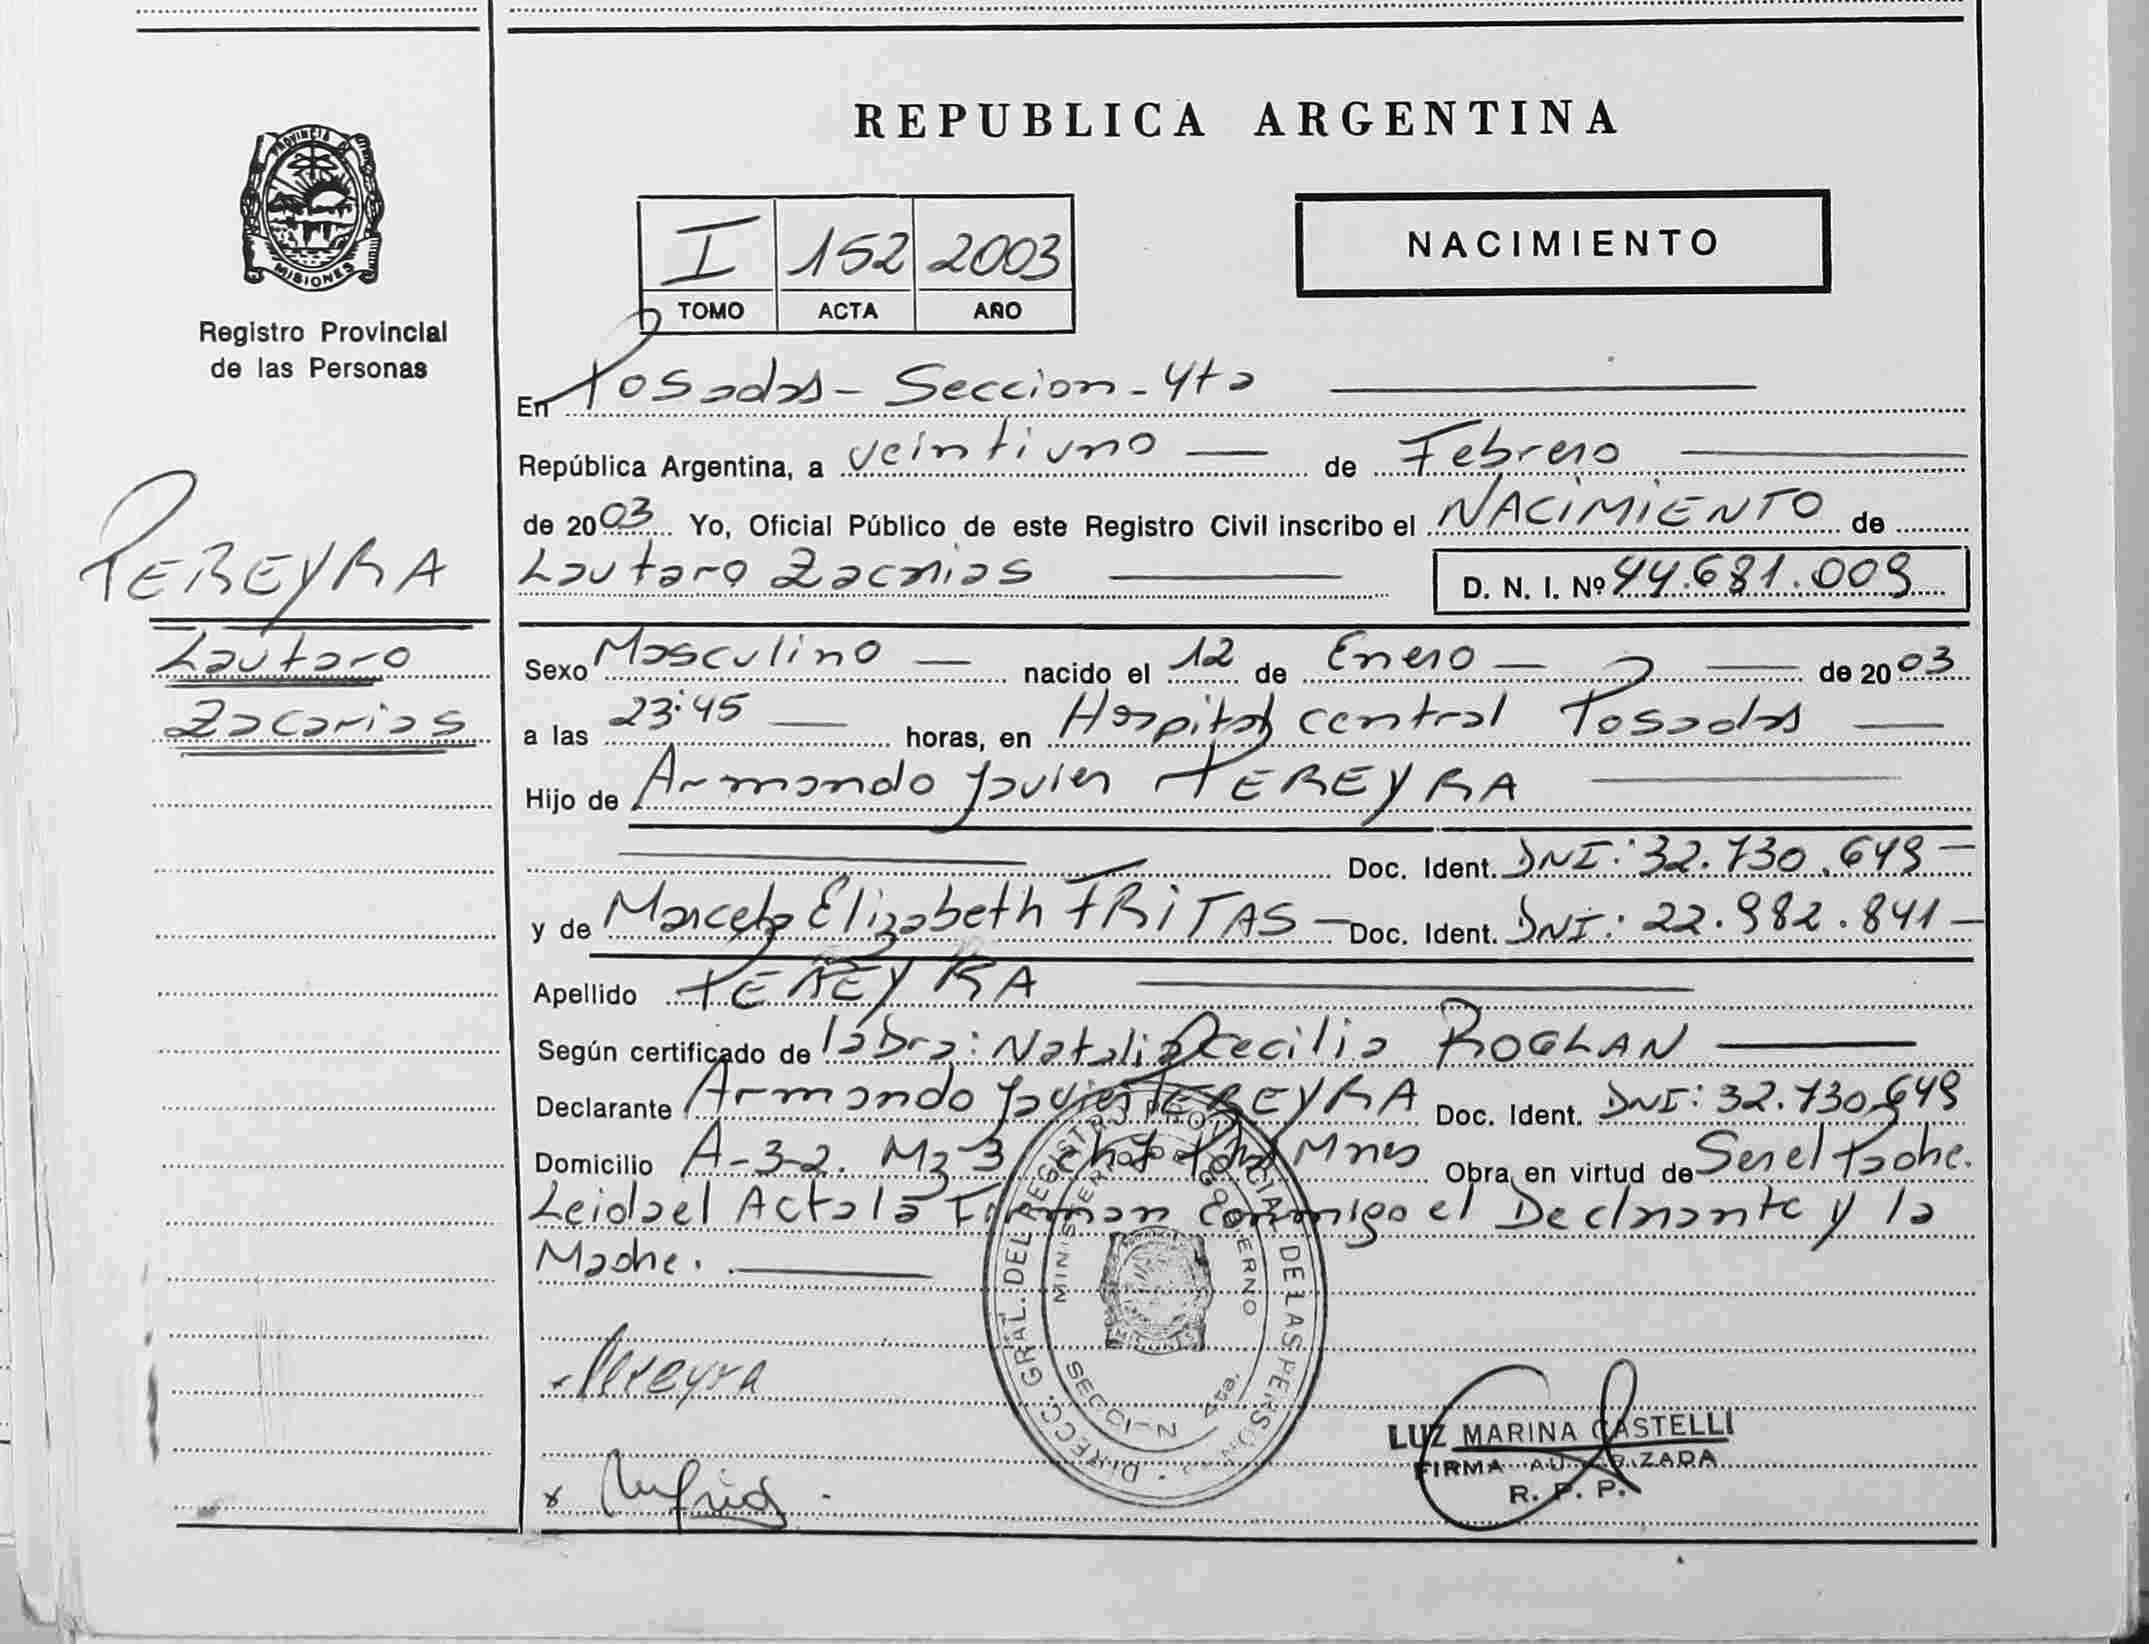 REPUBLICA ARGENTINA
PROVINCIA DE
MISIONES
Registro Provincial
de las Personas
I 152 2003
TOMO ACTA AÑO
NACIMIENTO
En Posadas - Seccion - 4ta
República Argentina, a veintiuno de Febrero
de 2003 Yo, Oficial Público de este Registro Civil inscribo el NACIMIENTO de
PEREYRA
Lautaro Zacarias D. N. I. Nº 44.681.009
Lautaro
Zacarias
Sexo Masculino nacido el 12 de Enero de 2003
a las 23:45 horas, en Hospital central Posadas
Hijo de Armando Javier PEREYRA
Doc. Ident. DNI: 32.730.649
y de Marcela Elizabeth FRITAS Doc. Ident. DNI: 22.982.841
Apellido PEREYRA
Según certificado de la Dra: Natalia Cecilia ROGLAN
Declarante Armando Javier PEREYRA Doc. Ident. DNI: 32.730.649
Domicilio A-3-2. Mz 3 Mnes Obra en virtud de Ser el Padre.
Leida el Acta la Firman conmigo el Declarante y la
Madre.
DIRECC. GRAL. DEL REGISTRO PROVINCIAL DE LAS PERSONAS
MINISTERIO DE GOBIERNO
SECCION 4ta.
Pereyra
LUZ MARINA CASTELLI
FIRMA AUTORIZADA
R. P. P.